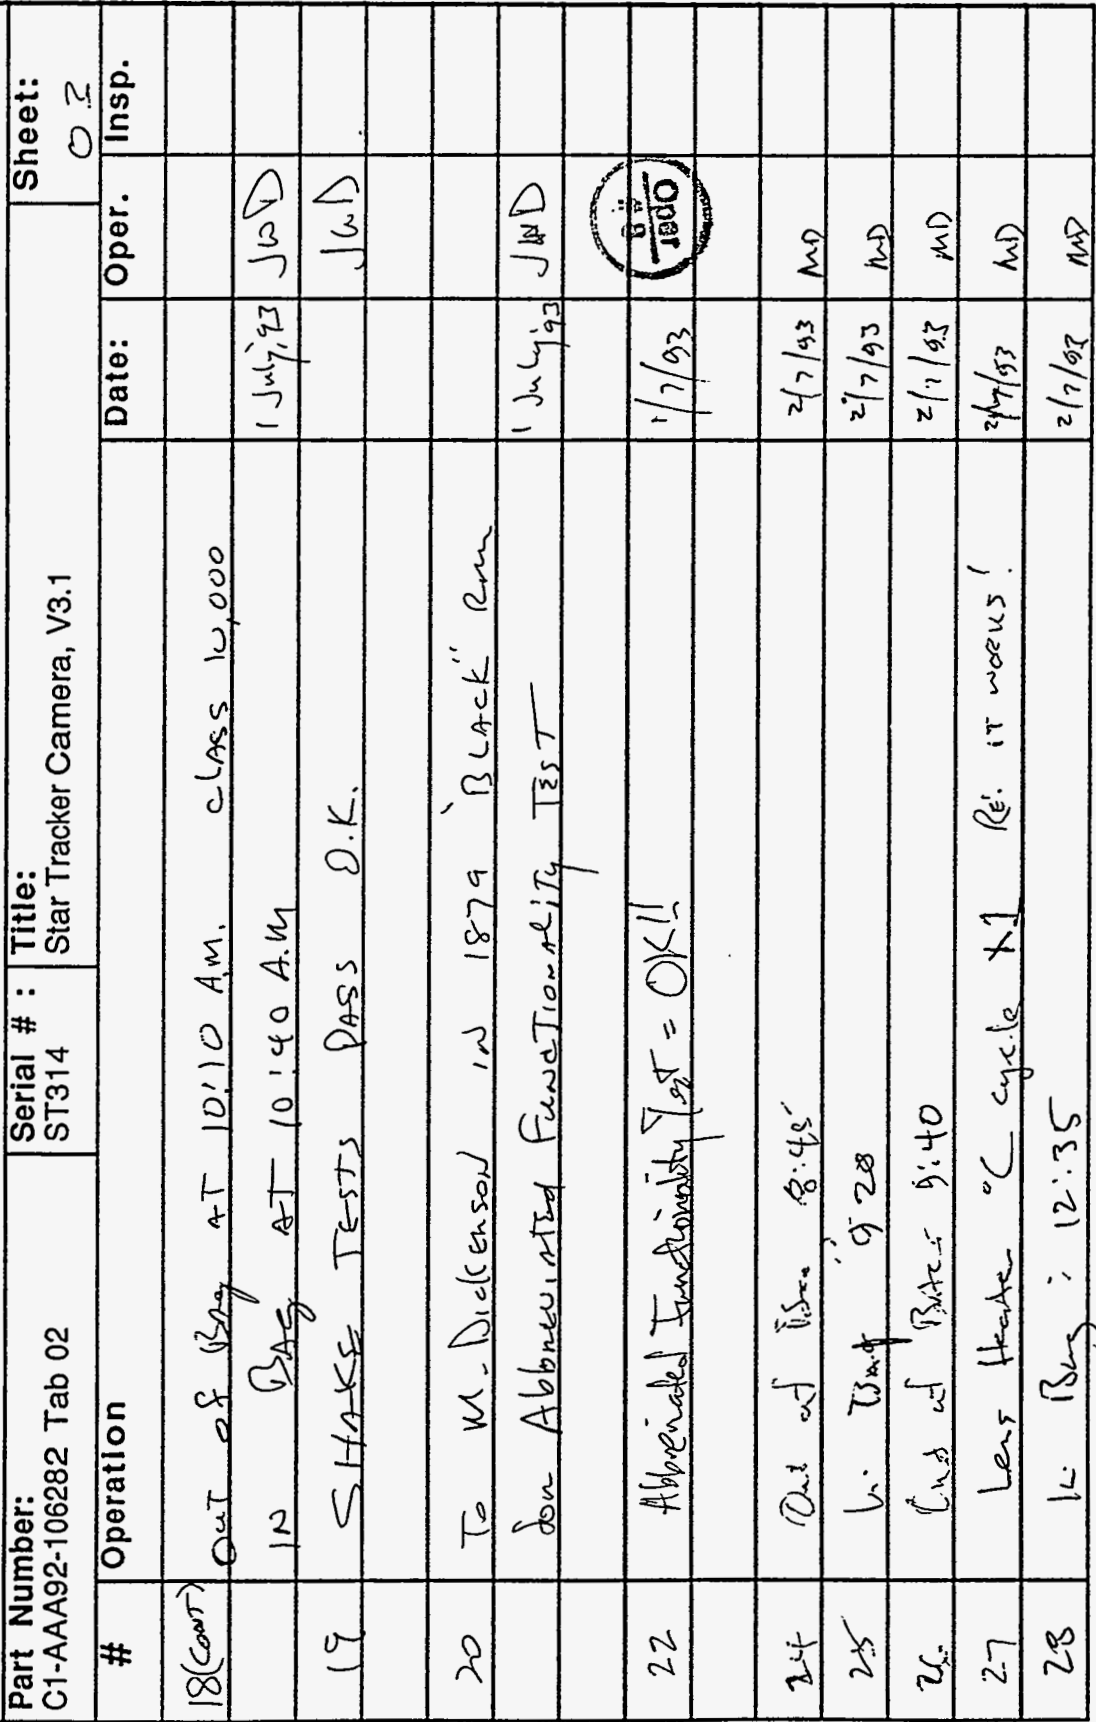 Part Number:
C1-AAA92-106282 Tab 02
Serial # :
ST314
Title:
Star Tracker Camera, V3.1
Sheet:
02
# Operation Date: Oper. Insp.
18(CONT) OUT OF BAG AT 10:10 A.M. CLASS 10,000
IN BAG AT 10:40 A.M 1 July '93 JWD
19 SHAKE TESTS PASS O.K. JWD
20 To M. Dickenson IN 1879 "BLACK" Rm
for Abbreviated Functionality Test 1 July '93 JWD
22 Abbreviated Functionality Test = OK!! 1/7/93 Oper
24 Out of 8:45 2/7/93 MD
25 In Bag 9 28 2/7/93 MD
26 Out of 9:40 2/7/93 MD
27 Lens Heater °C cycle X1 RE: IT WORKS! 2/7/93 MD
28 In Bag : 12:35 2/7/93 MD